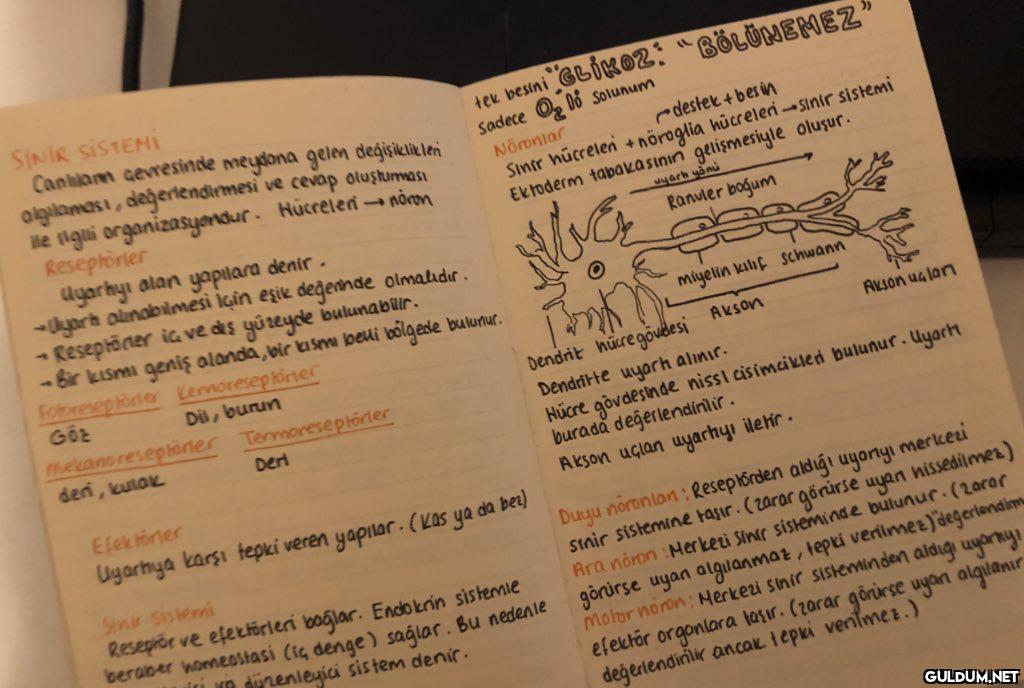 SİNİR SİSTEMİ
Canlıların çevresinde meydana gelen değişiklikleri
algılaması, değerlendirmesi ve cevap oluşturması
ile ilgili organizasyondur. Hücreleri → nöron
Reseptörler
Uyartıyı alan yapılara denir.
→ Uyartı alınabilmesi için eşik değerinde olmalıdır.
→ Reseptörler iç ve dış yüzeyde bulunabilir.
→ Bir kısmı geniş alanda, bir kısmı belli bölgede bulunur.
Fotoreseptörler Kemoreseptörler
Göz Dil, burun
Mekanoreseptörler Termoreseptörler
deri, kulak Deri
Efektörler
Uyartıya karşı tepki veren yapılar. (Kas ya da bez)
Sinir Sistemi
Reseptör ve efektörleri bağlar. Endokrin sistemle
beraber homeostasi (iç denge) sağlar. Bu nedenle
ve düzenleyici sistem denir.
tek besini "GLİKOZ: "BÖLÜNEMEZ"
sadece O₂ li solunum
Nöronlar
destek + besin
Sinir hücreleri + nöroglia hücreleri → sinir sistemi
Ektoderm tabakasının gelişmesiyle oluşur.
uyartı yönü
Ranvier boğum
miyelin kılıf schwann
Akson
Akson uçları
Dendrit hücre gövdesi
Dendritte uyartı alınır.
Hücre gövdesinde nissl cisimcikleri bulunur. Uyartı
burada değerlendirilir.
Akson uçları uyartıyı iletir.
Duyu nöronları: Reseptörden aldığı uyarıyı merkezi
sinir sistemine taşır. (zarar görürse uyarı hissedilmez)
Ara nöron: Merkezi sinir sisteminde bulunur. (zarar
görürse uyarı algılanmaz, tepki verilmez) "değerlendirm
Motor nöron: Merkezi sinir sisteminden aldığı uyartıyı
efektör organlara taşır. (zarar görürse uyarı algılanır
değerlendirilir ancak tepki verilmez.)
GULDUM.NET